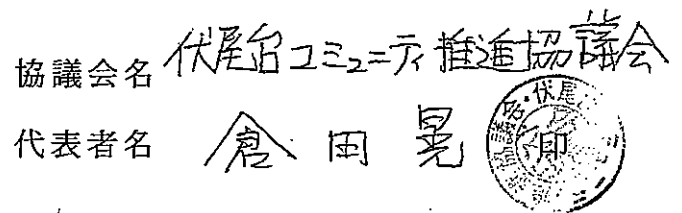 協議会名 伏尾台コミュニティ推進協議会
代表者名 倉田 晃 印